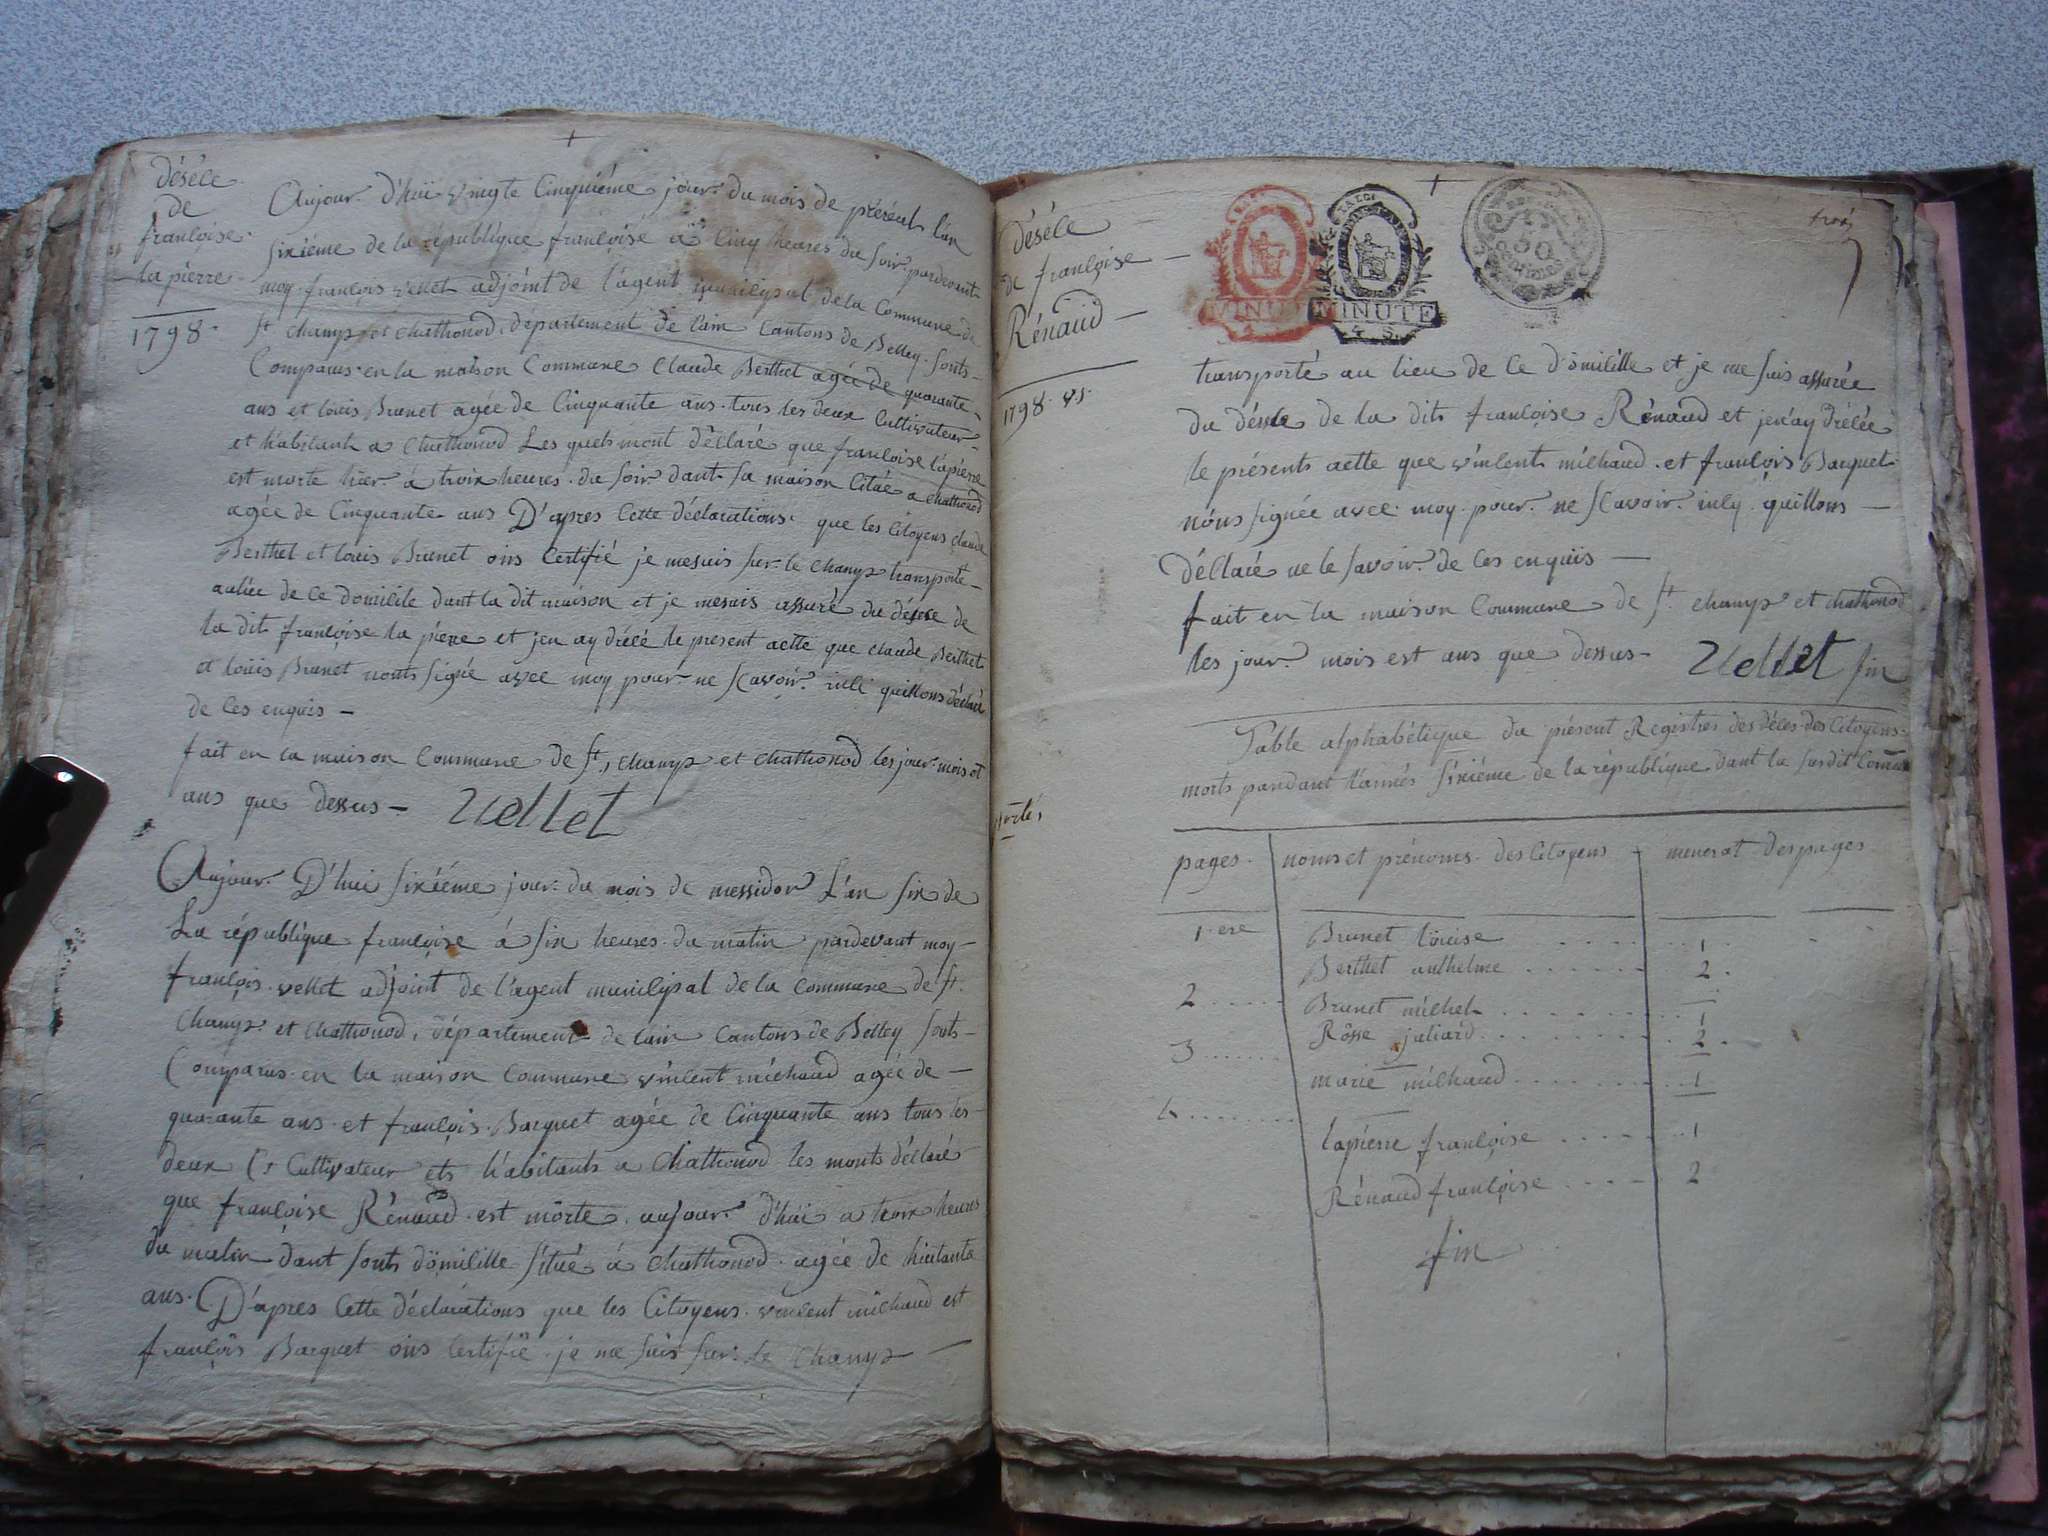 désèce
de
françoise
la pierre
1798
Aujour d'hui vingte Cinquiéme jour du mois de préréal l'an
sixiéme de la république françoise à Cinq heures du soir pardevant
moy françois vellet adjoint de l'agent municipal de la Commune de
st champs et chathonod, département de l'ain Cantons de Belley sonts
Comparus en la maison Commune Claude Berthet agée de quarante
ans et louis Brunet agée de Cinquante ans tous les deux Cultivateur
et habitants a Chathonod Les quels mont déclaré que françoise lapierre
est morte hier à troix heures du soir dant sa maison Citué a chathonod
agée de Cinquante ans D'apres Cette déclarations que les Citoyens claude
Berthet et louis Brunet ons Certifié je mesuis sur le champs transporte
aulieu de Ce domicile dant la dit maison et je mesuis assuré du désece de
la dits françoise la pierre et jen ay drécé le present actte que claude Berthet
et louis Brunet nonts signé avec moy pour ne scavoir quillons déclaré
de Ces enquis —
fait en la maison Commune de st champs et chathonod les jour mois et
ans que dessus — Vellet
Aujour D'hui sixiéme jour du mois de messidor L'an six de
La république françoise à six heures du matin pardevant moy
françois vellet adjoint de l'agent municipal de la Commune de st
Champs et chathonod, département de lain Cantons de Belley sonts
Comparus en la maison Commune vincent michaud agée de
quarante ans et françois Barquet agée de Cinquante ans tous les
deux Cultivateur ets habitants a Chathonod les monts déclaré
que françoise Rénaud est morte aujour d'hui a troix heures
du matin dant sonts domicille situé à Chathonod agée de huitante
ans. D'apres Cette déclarations que les Citoyens vincent michaud et
françois Barquet ons Certifié je me suis sur le champs —
désèce
de françoise
Rénaud
1798 vs.
MINUTE
MINUTE
4 S.
50
centimes
transporté au lieu de Ce domicille et je me suis assurée
du désece de la dits françoise Rénaud et jen ay drécée
le présents actte que vincent michaud et françois Barquet
nons signée avec moy pour ne scavoir quillons
déclaré ne le savoir de Ces enquis —
fait en la maison Commune de st champs et chathonod
les jour mois est ans que dessus — Vellet fin
Table alphabétique du présent Registres des déces des Citoyens
morts pandant l'annés sixiéme de la république dant la susdit Commune
pages. noms et prénoms des Citoyens numerot des pages
1 ere Brunet louise 1
Berthet anthelme 2
2 Brunet michel 1
Rosse juliard 2
3 marie michaud 1
4 Lapierre françoise 1
Rénaud françoise 2
fin